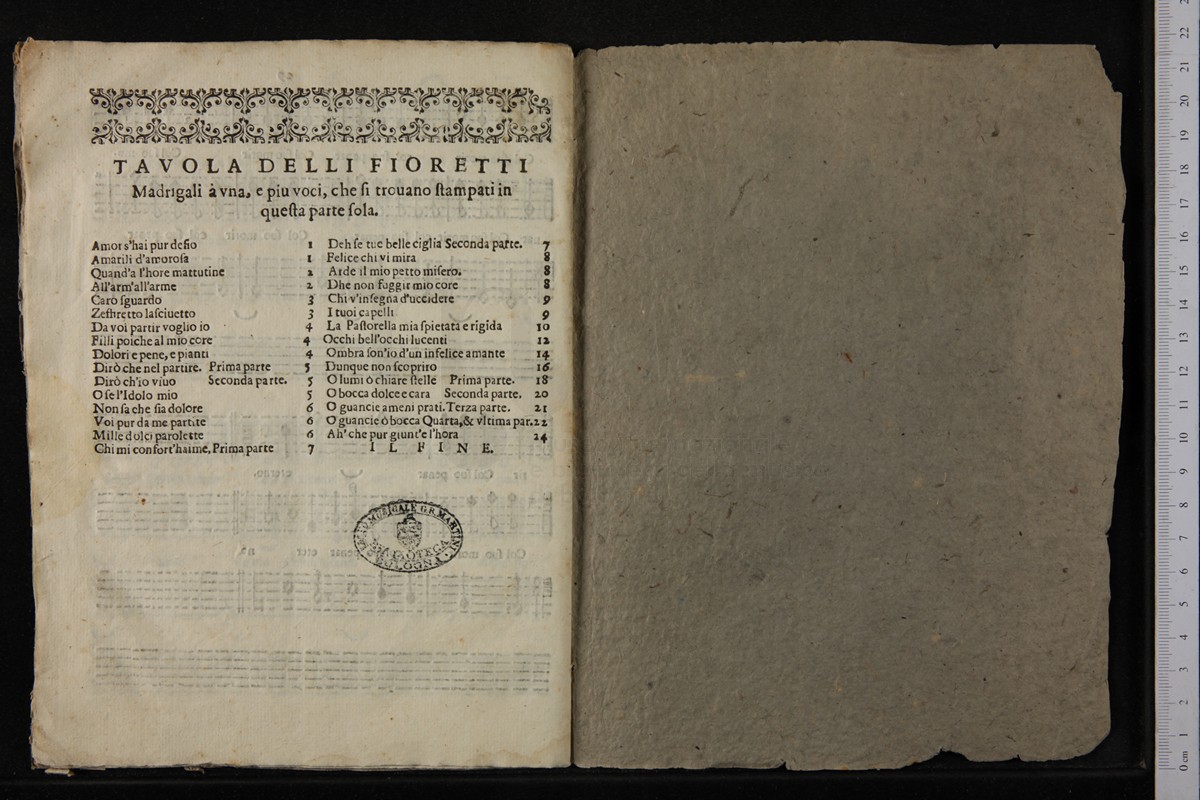 TAVOLA DELLI FIORETTI
Madrigali à vna, e piu voci, che ſi trouano ſtampati in
queſta parte ſola.
Amor s'hai pur deſio 1
Amarili d'amoroſa 1
Quand'a l'hore mattutine 2
All'arm'all'arme 2
Caro ſguardo 3
Zeffiretto laſciuetto 3
Da voi partir voglio io 4
Filli poiche al mio core 4
Dolori e pene, e pianti 4
Dirò che nel partire. Prima parte 5
Dirò ch'io viuo Seconda parte. 5
O ſe l'Idolo mio 5
Non ſa che ſia dolore 6
Voi pur da me partite 6
Mille dolci parolette 6
Chi mi confort'haime, Prima parte 7
Deh ſe tue belle ciglia Seconda parte. 7
Felice chi vi mira 8
Arde il mio petto miſero. 8
Dhe non fuggir mio core 8
Chi v'inſegna d'uccidere 9
I tuoi capelli 9
La Paſtorella mia ſpietata e rigida 10
Occhi bell'occhi lucenti 12
Ombra ſon'io d'un infelice amante 14
Dunque non ſcoprirò 16
O lumi ò chiare ſtelle Prima parte. 18
O bocca dolce e cara Seconda parte. 20
O guancie ameni prati. Terza parte. 21
O guancie ò bocca Quarta, & vltima par. 22
Ah' che pur giunt'e l'hora 24
IL FINE.
MUSICALE G.B. MARTINI
BIBLIOTECA
BOLOGNA